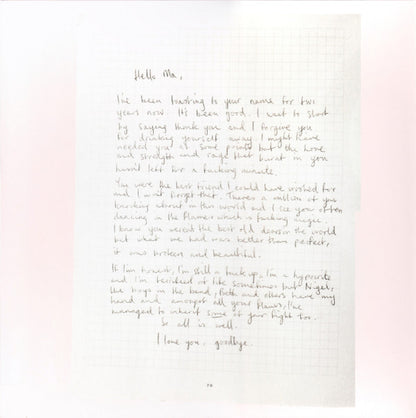 Hello Ma,
I've been toasting to your name for two
years now. It's been good. I want to start
by saying thank you and I forgive you
for drinking yourself away. I might have
needed you at some points but the love
and strength and rage that burnt in you
hasn't left for a fucking minute.
You were the best friend I could have wished for
and I won't forget that. There's a million of you
about in this world and I see you often
dancing in the flames which is fucking
I know you weren't the best old dear in the world
but what we had was better than perfect,
it was broken and beautiful.
If I'm honest, I'm still a fuck up, I'm a hypocrite
and I'm terrified of life sometimes but Nigel,
the boys in the band, Beth and others have my
hand and amongst all your flaws, I've
managed to inherit some of your light too.
So all is well.
I love you, goodbye.